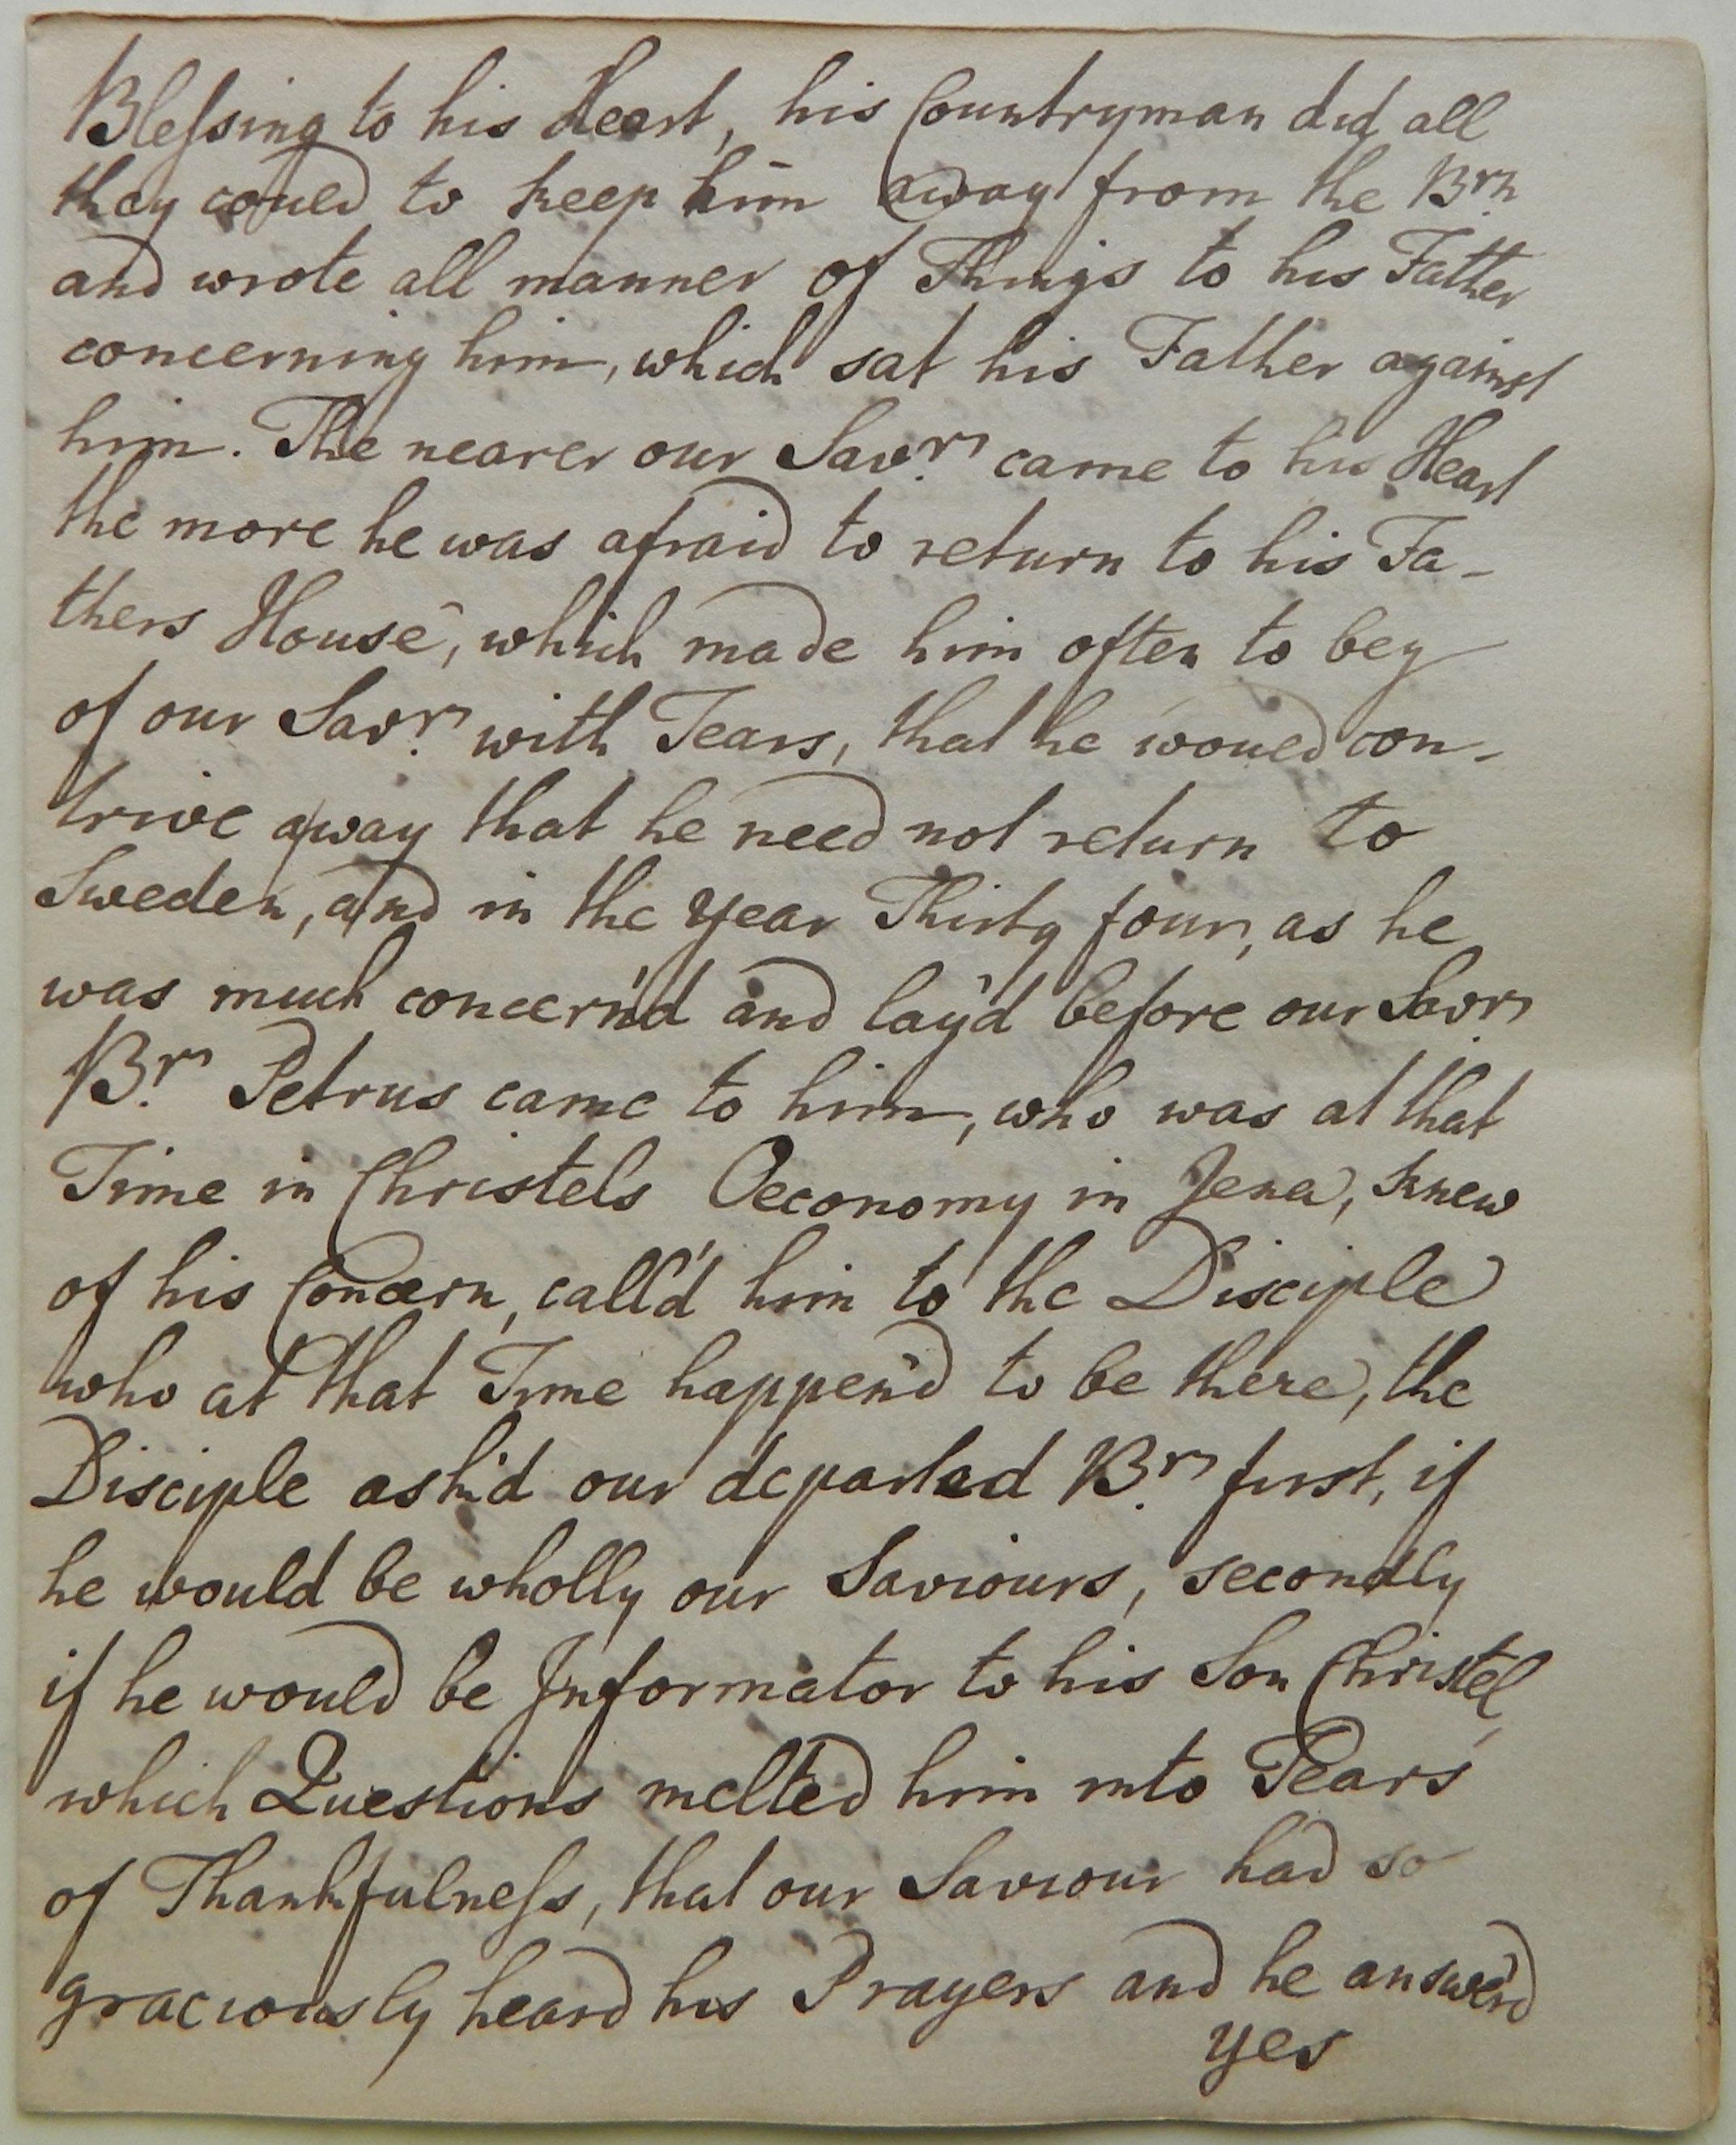 Blessing to his Heart, his Countryman did all
they coued to keep him away from the Brn
and wrote all manner of Things to his Father
concerning him, which sat his Father against
him. The nearer our Savr. came to his Heart
the more he was afraid to return to his Fa-
thers House, which made him often to beg
of our Savr. with Tears, that he woued con-
trive a way that he need not return to
Sweden, and in the year Thirty four, as he
was much concern'd and lay'd before our Savr.
Br. Petrus came to him, who was at that
Time in Christels Oeconomy in Jena, knew
of his Concern, call'd him to the Disciple
who at that Time happen'd to be there, the
Disciple ask'd our departed Br. first, if
he would be wholly our Saviours, secondly
if he would be Informator to his Son Christel,
which Questions melted him into Tears
of Thankfulness, that our Saviour had so
graciously heard his Prayers and he answer'd
yes